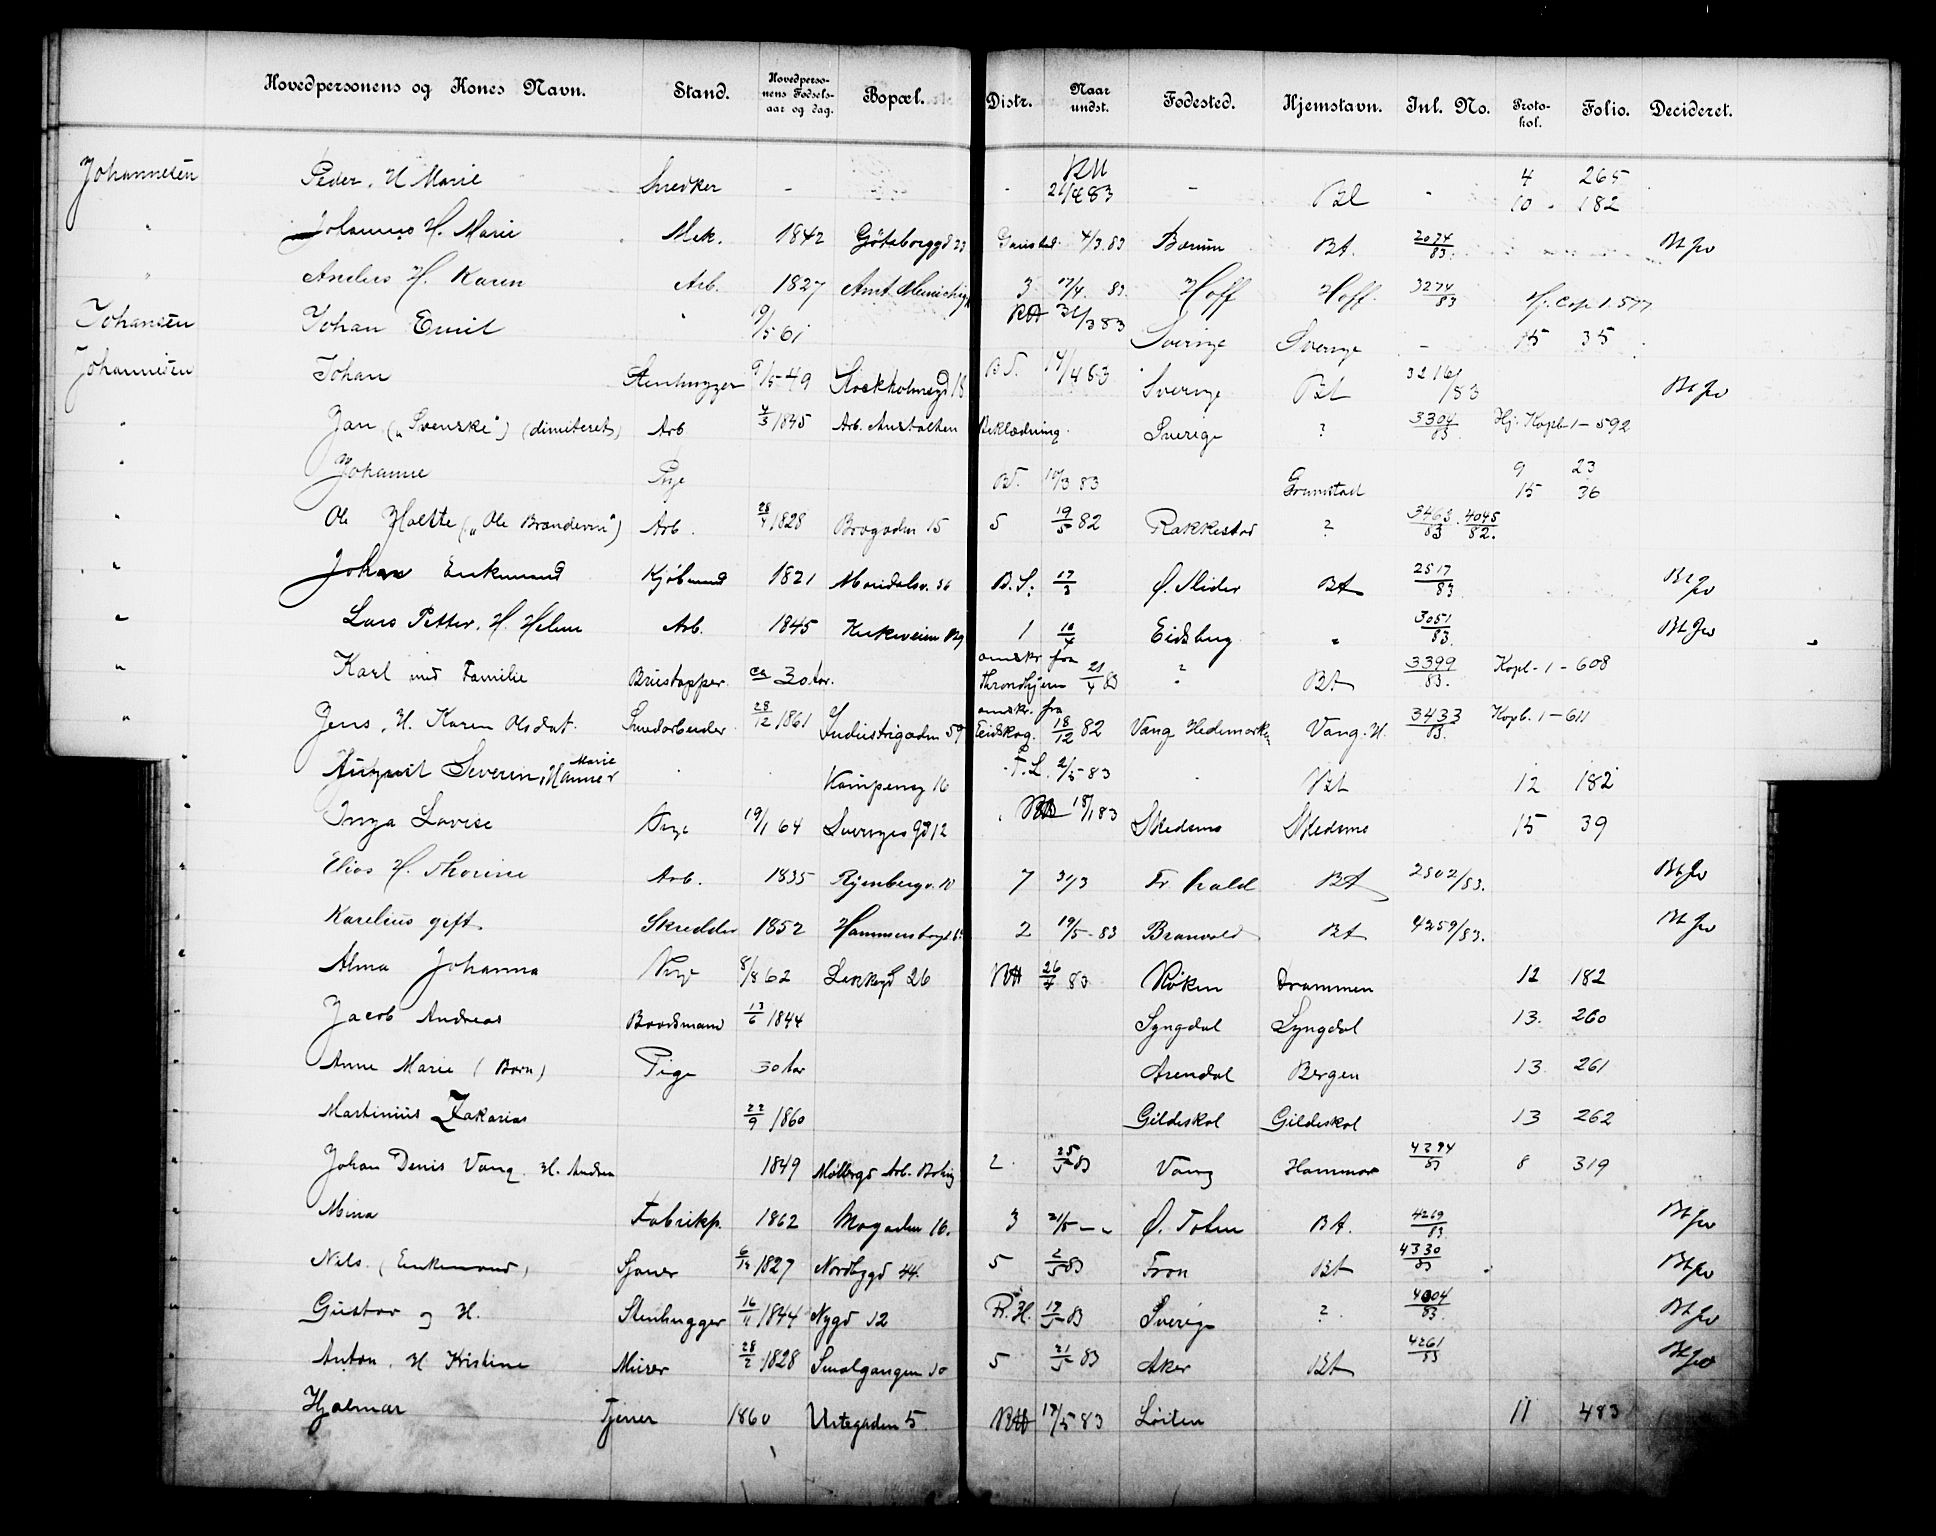 Hovedpersonens og Kones Navn. Stand. Hovedperso-nens Fødsels-aar og dag. Bopæl. Distr. Naar undst. Fødested. Hjemstavn. Jnl. No. Proto-kol. Folio. Decideret.
Johannesen Peder, H Marie Snedker - - 21/4 83 - Bt - 4 265
10 182
" Johannes H. Marie Mek. 1842 Göteborggd 23 4/3 83 Bærum Bt. 2074/83 Bt Jvv
" Anders H. Karen Arb. 1827 3 17/4 83 Hoff Hoff. 3274/83 Hj. Cop 1. 577
Johansen Johan Emil " 19/5 61 31/3 83 Sverige Sverige - 15 35
Johannesen Johan Stenhugger 9/5 49 Stockholmsgd 18 Sverige Bt 3216/83 Bt Jvv
" Jan („Svenske“) (dimiteret) Arb 4/3 1845 Arb. Anstalten Beklædning. Sverige ? 3304/83 Hj. Kopb 1-592
" Johanne Pige 10/3 83 Grimstad 9 23
15 36
" Ole Holte („Ole Brændevin“) Arb. 28/4 1828 Brogaden 15 5 19/5 82 Rakkestad ? 3463/83 . 4045/82.
" Johan Enkemand Kjøbmand 1821 Maridalsv. 36 B. S: 17/3 Ø. Slidre Bt 2517/83 Bt Jvv
" Lars Petter, H. Helene Arb. 1845 Kirkeveien 1 10/4 Eidsberg " 3051/83. Bt Jvv
" Karl med Familie Bruestapper ca 30 Aar. omskr fra Throndhjem 21/4 83 ? Bt 3399/83. Kopb-1-608
" Jens, H. Karen Olsdat. Smedarbeider 28/12 1861 Industrigaden 59 omskr. fra Eidskog. 18/12 82 Vang Hedemarken Vang. H. 3433/83. Kopb. 1-611
" August Severin, H Marie Kampensg 16 2/5 83 - Bt 12 182
Inga Lovise Pige 19/1 64 Sverigesgd 12 18/1 83 Skedsmo Skedsmo 15 39
" Elias H. Thorine Arb. 1835 Ryenbergv. 10 7 31/3 Fr. hald Bt 2502/83. Bt Jvv
" Karelius gift Skredder 1852 2 19/5-83 Branvold Bt 4259/83. Bt Jvv
" Alma Johanna Pige 8/8 62 Lakkegd 26 RH 26/4 83 Røken Drammen 12 182
" Jacob Andreas Baadsmand 13/6 1844 Lyngdal Lyngdal 13. 260
" Anne Marie (Barn) Pige 30 Aar Arendal Bergen 13 261
" Martinius Zakarias 22/9 1860 Gildeskal Gildeskal 13 262
" Johan Denis Vang. H. Andrea 1849 Møllergd Arb. Bolig 2. 25/5 83 Vang Hammar 4294/83 8 319
" Mina Fabrikp. 1862 Mogaden 16. 3 21/5 - " Ø. Toten Bt. 4269/83. Bt Jvv
" Nils. (Enkemand) Sjauer 6/12 1827 Nordbygd 44. 5 2/5 83 Fron Bt 4330/83 Bt Jvv
" Gustav og H. Stenhugger 16/11 1844 Nygd 12 R. H. 17/5 83 Sverige ? 4304/83. Bt Jvv
" Anton, H Kristine Murer 28/2 1828 Smalgangen 10 5 21/5 83 Aker Bt 4261/83 Bt Jvv
Hjalmar Tjener 1860 Urtegaden 5. RH 17/5 83 Løiten 11 483